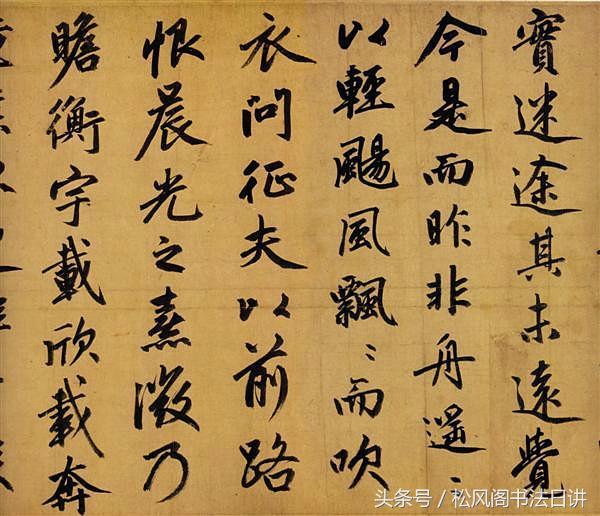 實迷途其未遠覺
今是而昨非舟遙〻
以輕颺風飄〻而吹
衣問征夫以前路
恨晨光之熹微乃
瞻衡宇載欣載奔
头条号 / 松风阁书法日讲